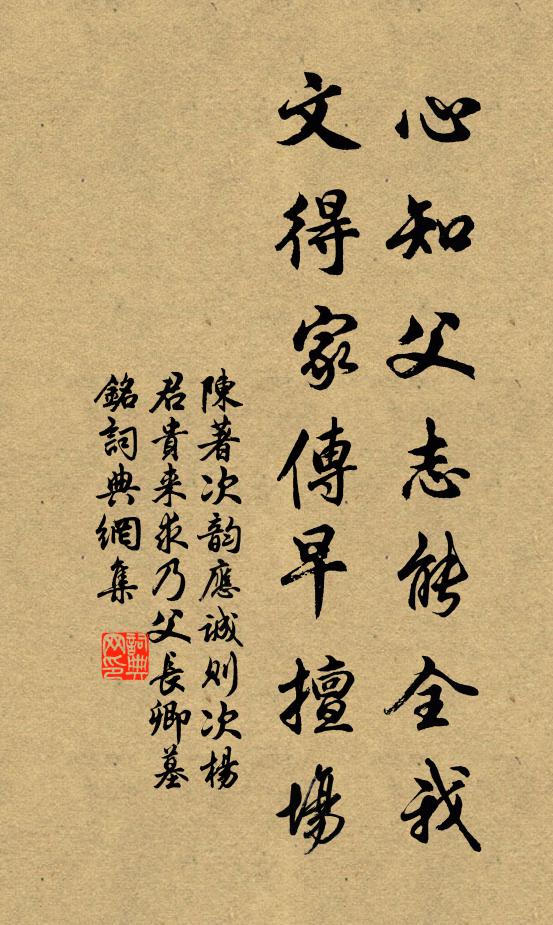 心知父志能全我
文得家傳早擅場
陳著次韵應誠則次楊
君貴来求乃父長卿墓
銘詞典網集
詞典网印